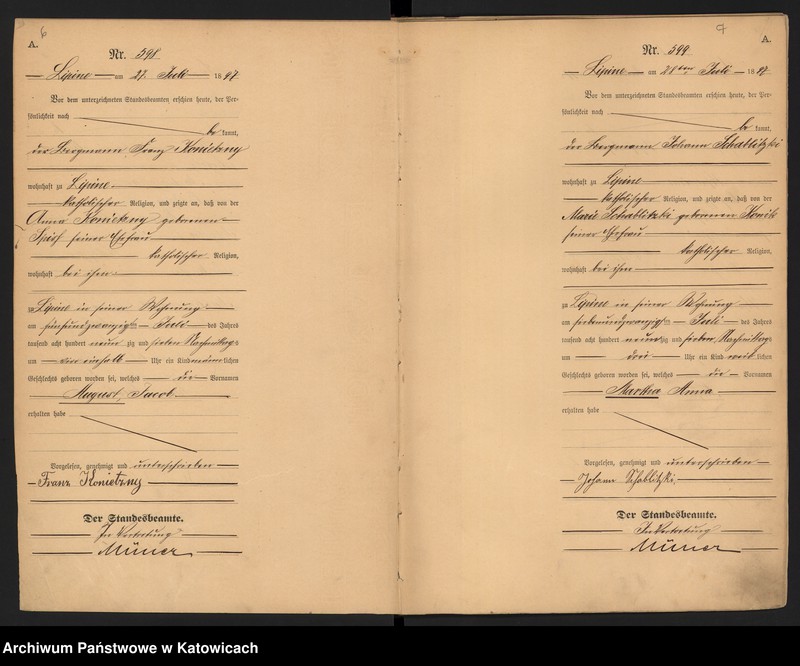 6
A.
Nr. 598
Lipine am 27. Juli 1897
Vor dem unterzeichneten Standesbeamten erschien heute, der Per-
sönlichkeit nach
be kannt,
der Bergmann Franz Konietzny
wohnhaft zu Lipine
katholischer Religion, und zeigte an, daß von der
Anna Konietzny geborenen
seiner Ehefrau
katholischer Religion,
wohnhaft bei ihm
zu Lipine in seiner Wohnung
am fünfundzwanzigsten Juli des Jahres
tausend acht hundert neun zig und sieben Nachmittags
um ein halb Uhr ein Kind männlichen
Geschlechts geboren worden sei, welches die Vornamen
August, Jacob
erhalten habe
Vorgelesen, genehmigt und unterschrieben
Franz Konietzny
Der Standesbeamte.
In Vertretung
A.
Nr. 599
Lipine am 28ten Juli 1897
Vor dem unterzeichneten Standesbeamten erschien heute, der Per-
sönlichkeit nach
be kannt,
der Bergmann Johann Schablitzki
wohnhaft zu Lipine
katholischer Religion, und zeigte an, daß von der
Marie Schablitzki geborenen
seiner Ehefrau
katholischer Religion,
wohnhaft bei ihm
zu Lipine in seiner Wohnung
am siebenundzwanzigsten Juli des Jahres
tausend acht hundert neun zig und sieben Nachmittags
um drei Uhr ein Kind weib lichen
Geschlechts geboren worden sei, welches die Vornamen
Martha Anna
erhalten habe
Vorgelesen, genehmigt und unterschrieben
Johann Schablitzki
Der Standesbeamte.
In Vertretung
Archiwum Państwowe w Katowicach